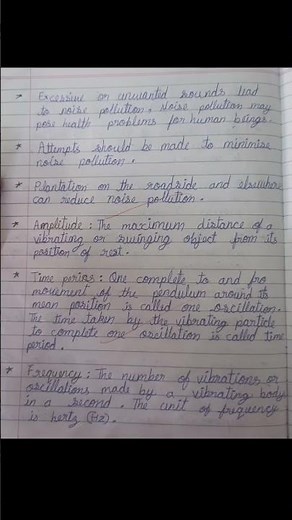 * Excessive or unwanted sounds lead
to noise pollution. Noise pollution may
pose health problems for human beings.
* Attempts should be made to minimise
noise pollution.
* Plantation on the roadside and elsewhere
can reduce noise pollution.
* Amplitude : The maximum distance of a
vibrating or swinging object from its
position of rest.
* Time period : One complete to and fro
movement of the pendulum around its
mean position is called one oscillation.
The time taken by the vibrating particle
to complete one oscillation is called time
period.
* Frequncy : The number of vibrations or
oscillations made by a vibrating body
in a second. The unit of frequency
is hertz (Hz).